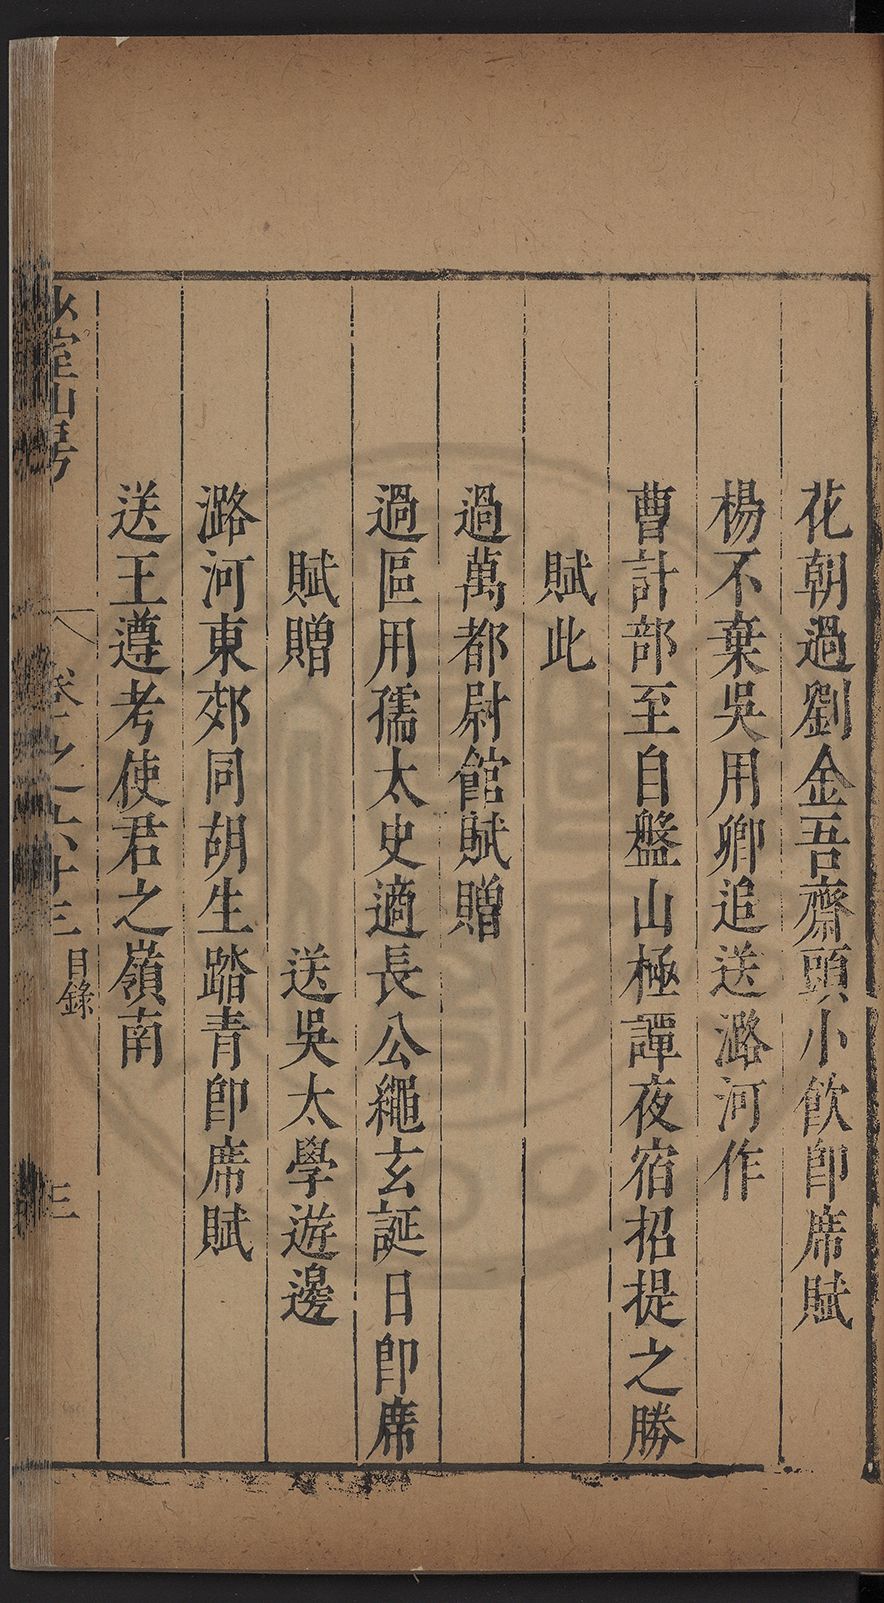 花朝過劉金吾齋頭小飲卽席賦
楊不棄吳用卿追送潞河作
曹計部至自盤山極譚夜宿招提之勝
賦此
過萬都尉館賦贈
過區用孺太史適長公繩玄誕日卽席
賦贈　送吳太學遊邊
潞河東郊同胡生踏青卽席賦
送王遵考使君之嶺南
少室山房 卷之六十三 目錄 三